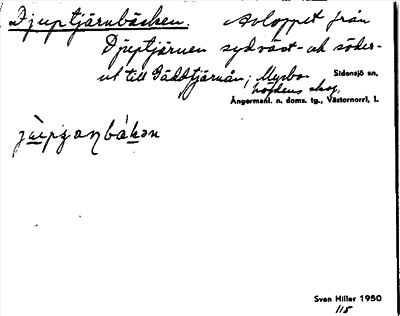 Djuptjärnbäcken. Avloppet från
Djuptjärnen sydväst- och söder-
ut till Gäddtjärnån; Myrbo-
höjdens skog, Sidensjö sn,
Ångermanl. n. doms. tg., Västernorrl. l.
Sven Hiller 1950
115